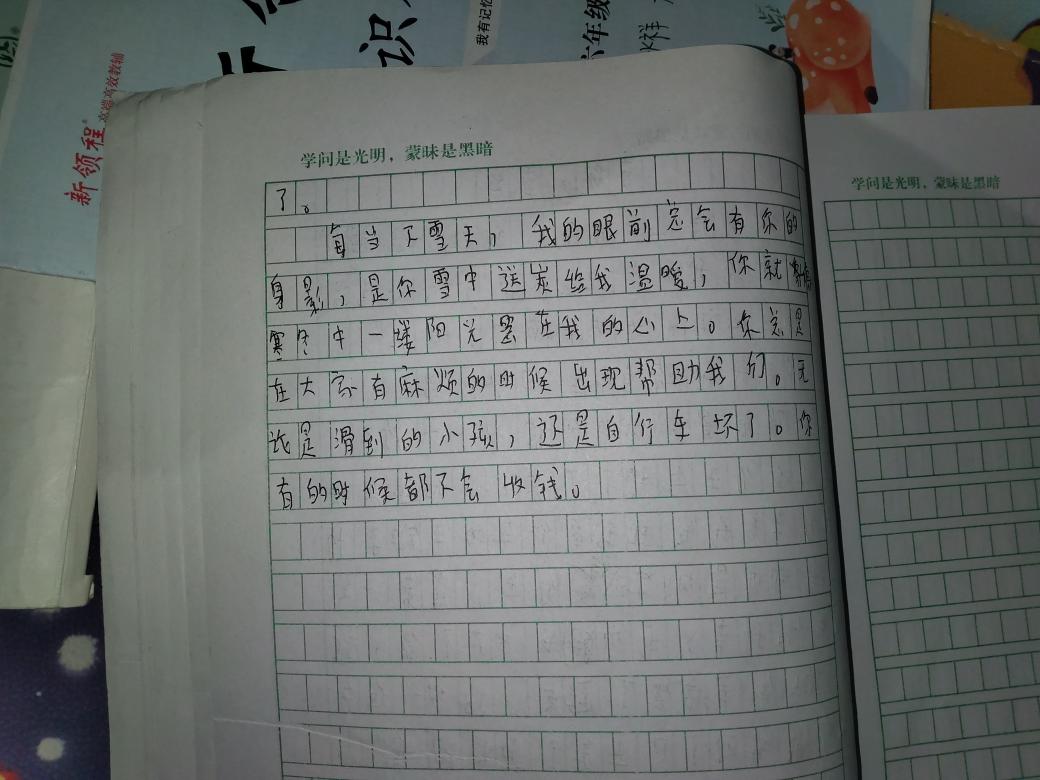 识
我有记忆
六年级
祥
新领程
学问是光明，蒙昧是黑暗
学问是光明，蒙昧是黑暗
了。
每当下雪天，我的眼前总会有你的
身影，是你雪中送炭给我温暖，你就像
寒冬中一缕阳光墨在我的心上。你总是
在大家有麻烦的时候出现帮助我们。无
论是滑到的小孩，还是自行车坏了。你
有的时候都不会收钱。